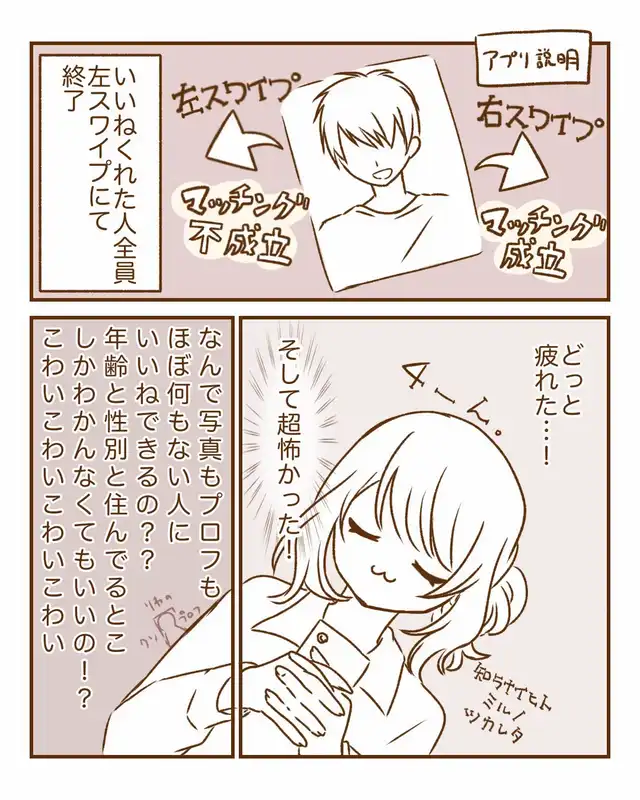 アプリ説明
右スワイプ
マッチング
成立
左スワイプ
マッチング
不成立
いいねくれた人全員
左スワイプにて
終了
どっと
疲れた…！
すーん。
そして超怖かった！
知らナイヒト
ミルノ
ツカレタ
なんで写真もプロフも
ほぼ何もない人に
いいねできるの？？
年齢と性別と住んでるとこ
しかわかんなくてもいいの！？
こわいこわいこわいこわい
りカの
クソ
プロフ